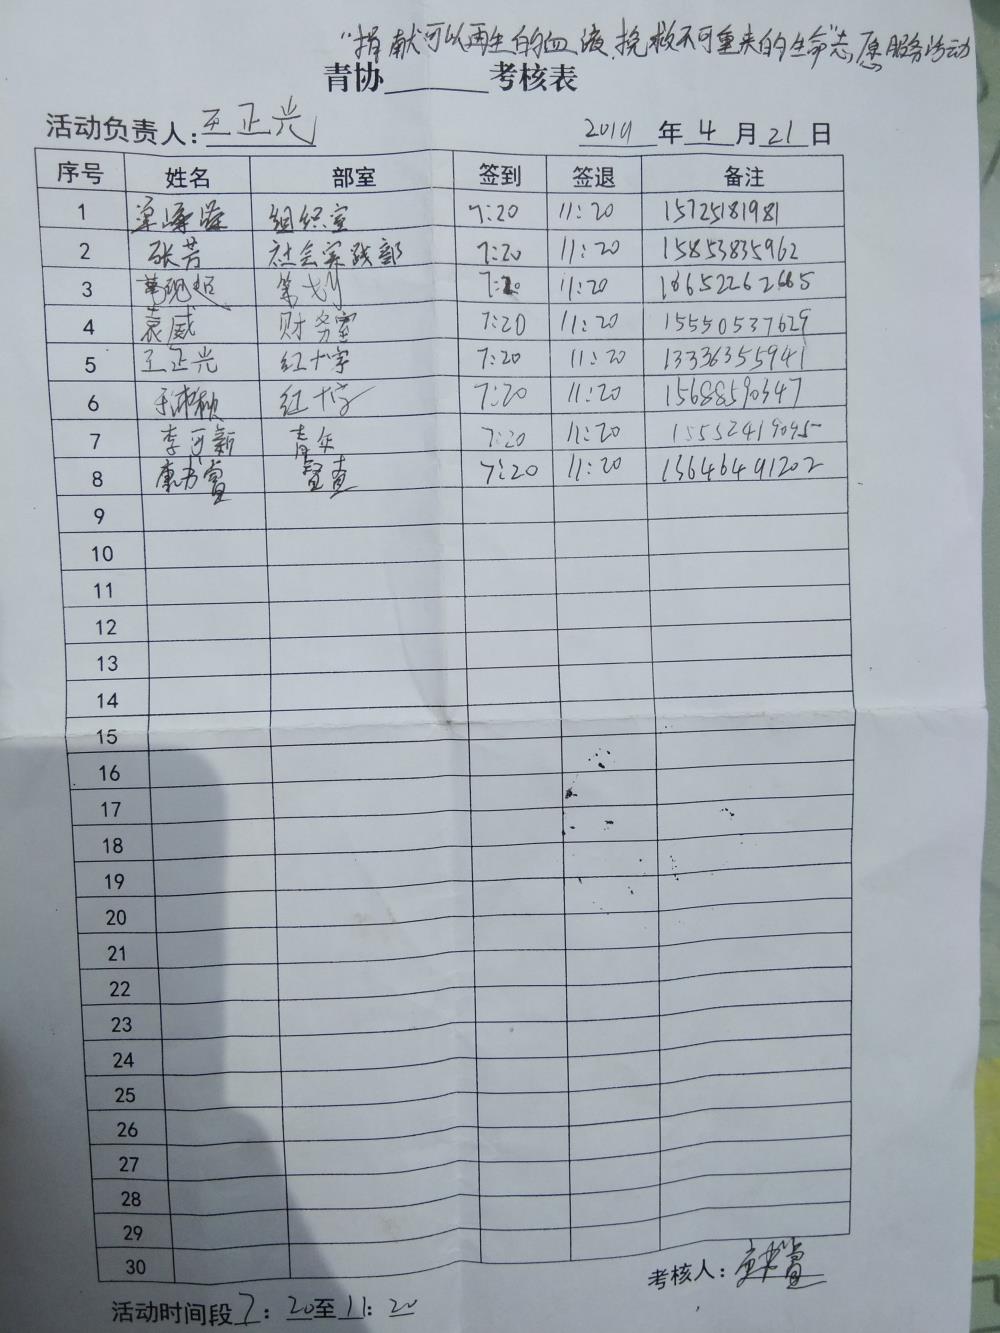 "捐献可以再生的血液,挽救不可重来的生命"志愿服务活动
青协______考核表
活动负责人: 王正兴 2019 年 4 月 21 日
序号 姓名 部室 签到 签退 备注
1 组织室 7:20 11:20 15725181981
2 张芳 社会实践部 7:20 11:20 15853835962
3 策划 7:20 11:20
4 袁威 财务室 7:20 11:20 15550537629
5 王正兴 红十字 7:20 11:20 13336355941
6 红十字 7:20 11:20 15688590347
7 李可新 青年 7:20 11:20 15552419095
8 康书萱 督查 7:20 11:20 13646491202
9
10
11
12
13
14
15
16
17
18
19
20
21
22
23
24
25
26
27
28
29
30
考核人: 康书萱
活动时间段 7: 20至11: 20